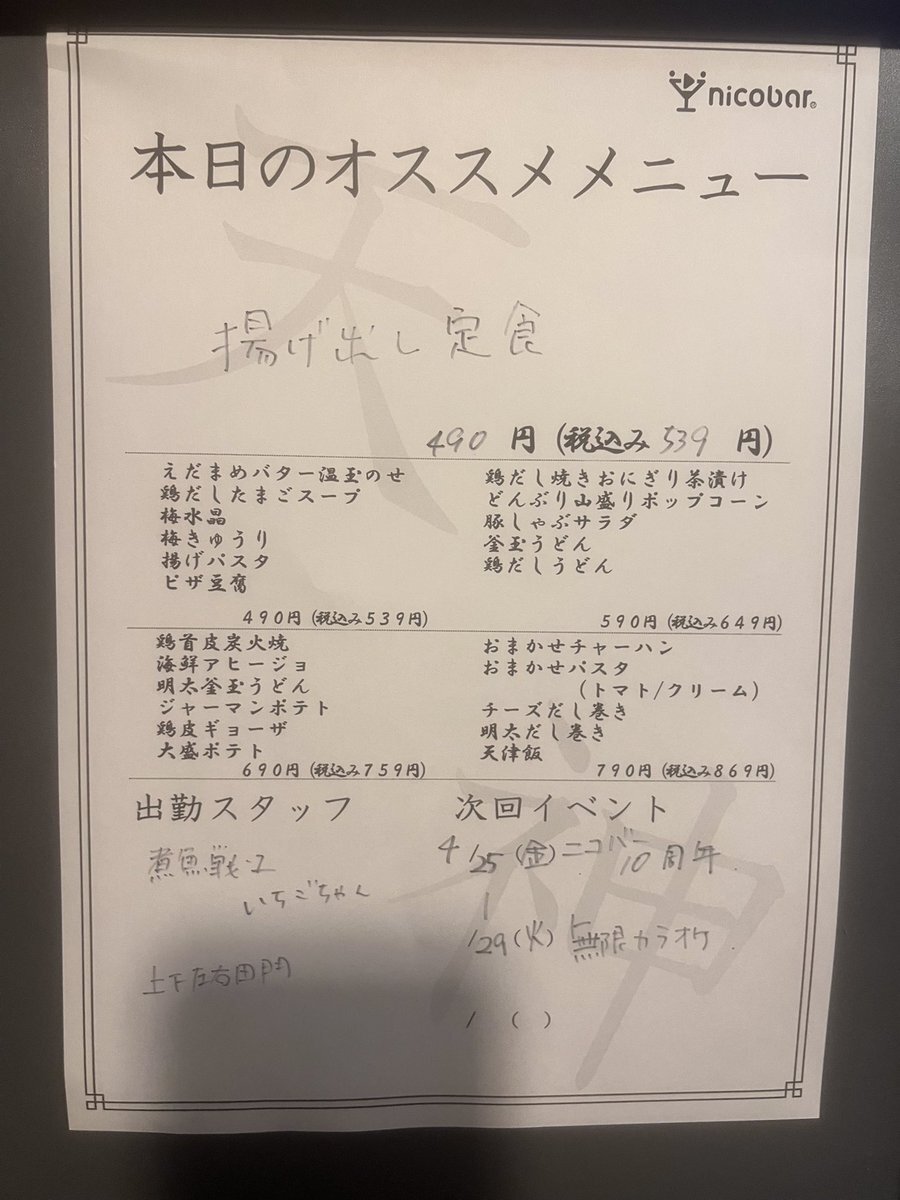 nicobar®
本日のオススメメニュー
揚げ出し定食
490 円 (税込み 539 円)
えだまめバター温玉のせ
鶏だしたまごスープ
梅水晶
梅きゅうり
揚げパスタ
ピザ豆腐
490円 (税込み539円)
鶏だし焼きおにぎり茶漬け
どんぶり山盛りポップコーン
豚しゃぶサラダ
釜玉うどん
鶏だしうどん
590円 (税込み649円)
鶏首皮炭火焼
海鮮アヒージョ
明太釜玉うどん
ジャーマンポテト
鶏皮ギョーザ
大盛ポテト
690円 (税込み759円)
おまかせチャーハン
おまかせパスタ
(トマト/クリーム)
チーズだし巻き
明太だし巻き
天津飯
790円 (税込み869円)
出勤スタッフ
煮魚戦士
いちごちゃん
上下左右田門
次回イベント
4/25 (金) ニコバー10周年
/29 (火) 無限カラオケ
/ ( )
天神